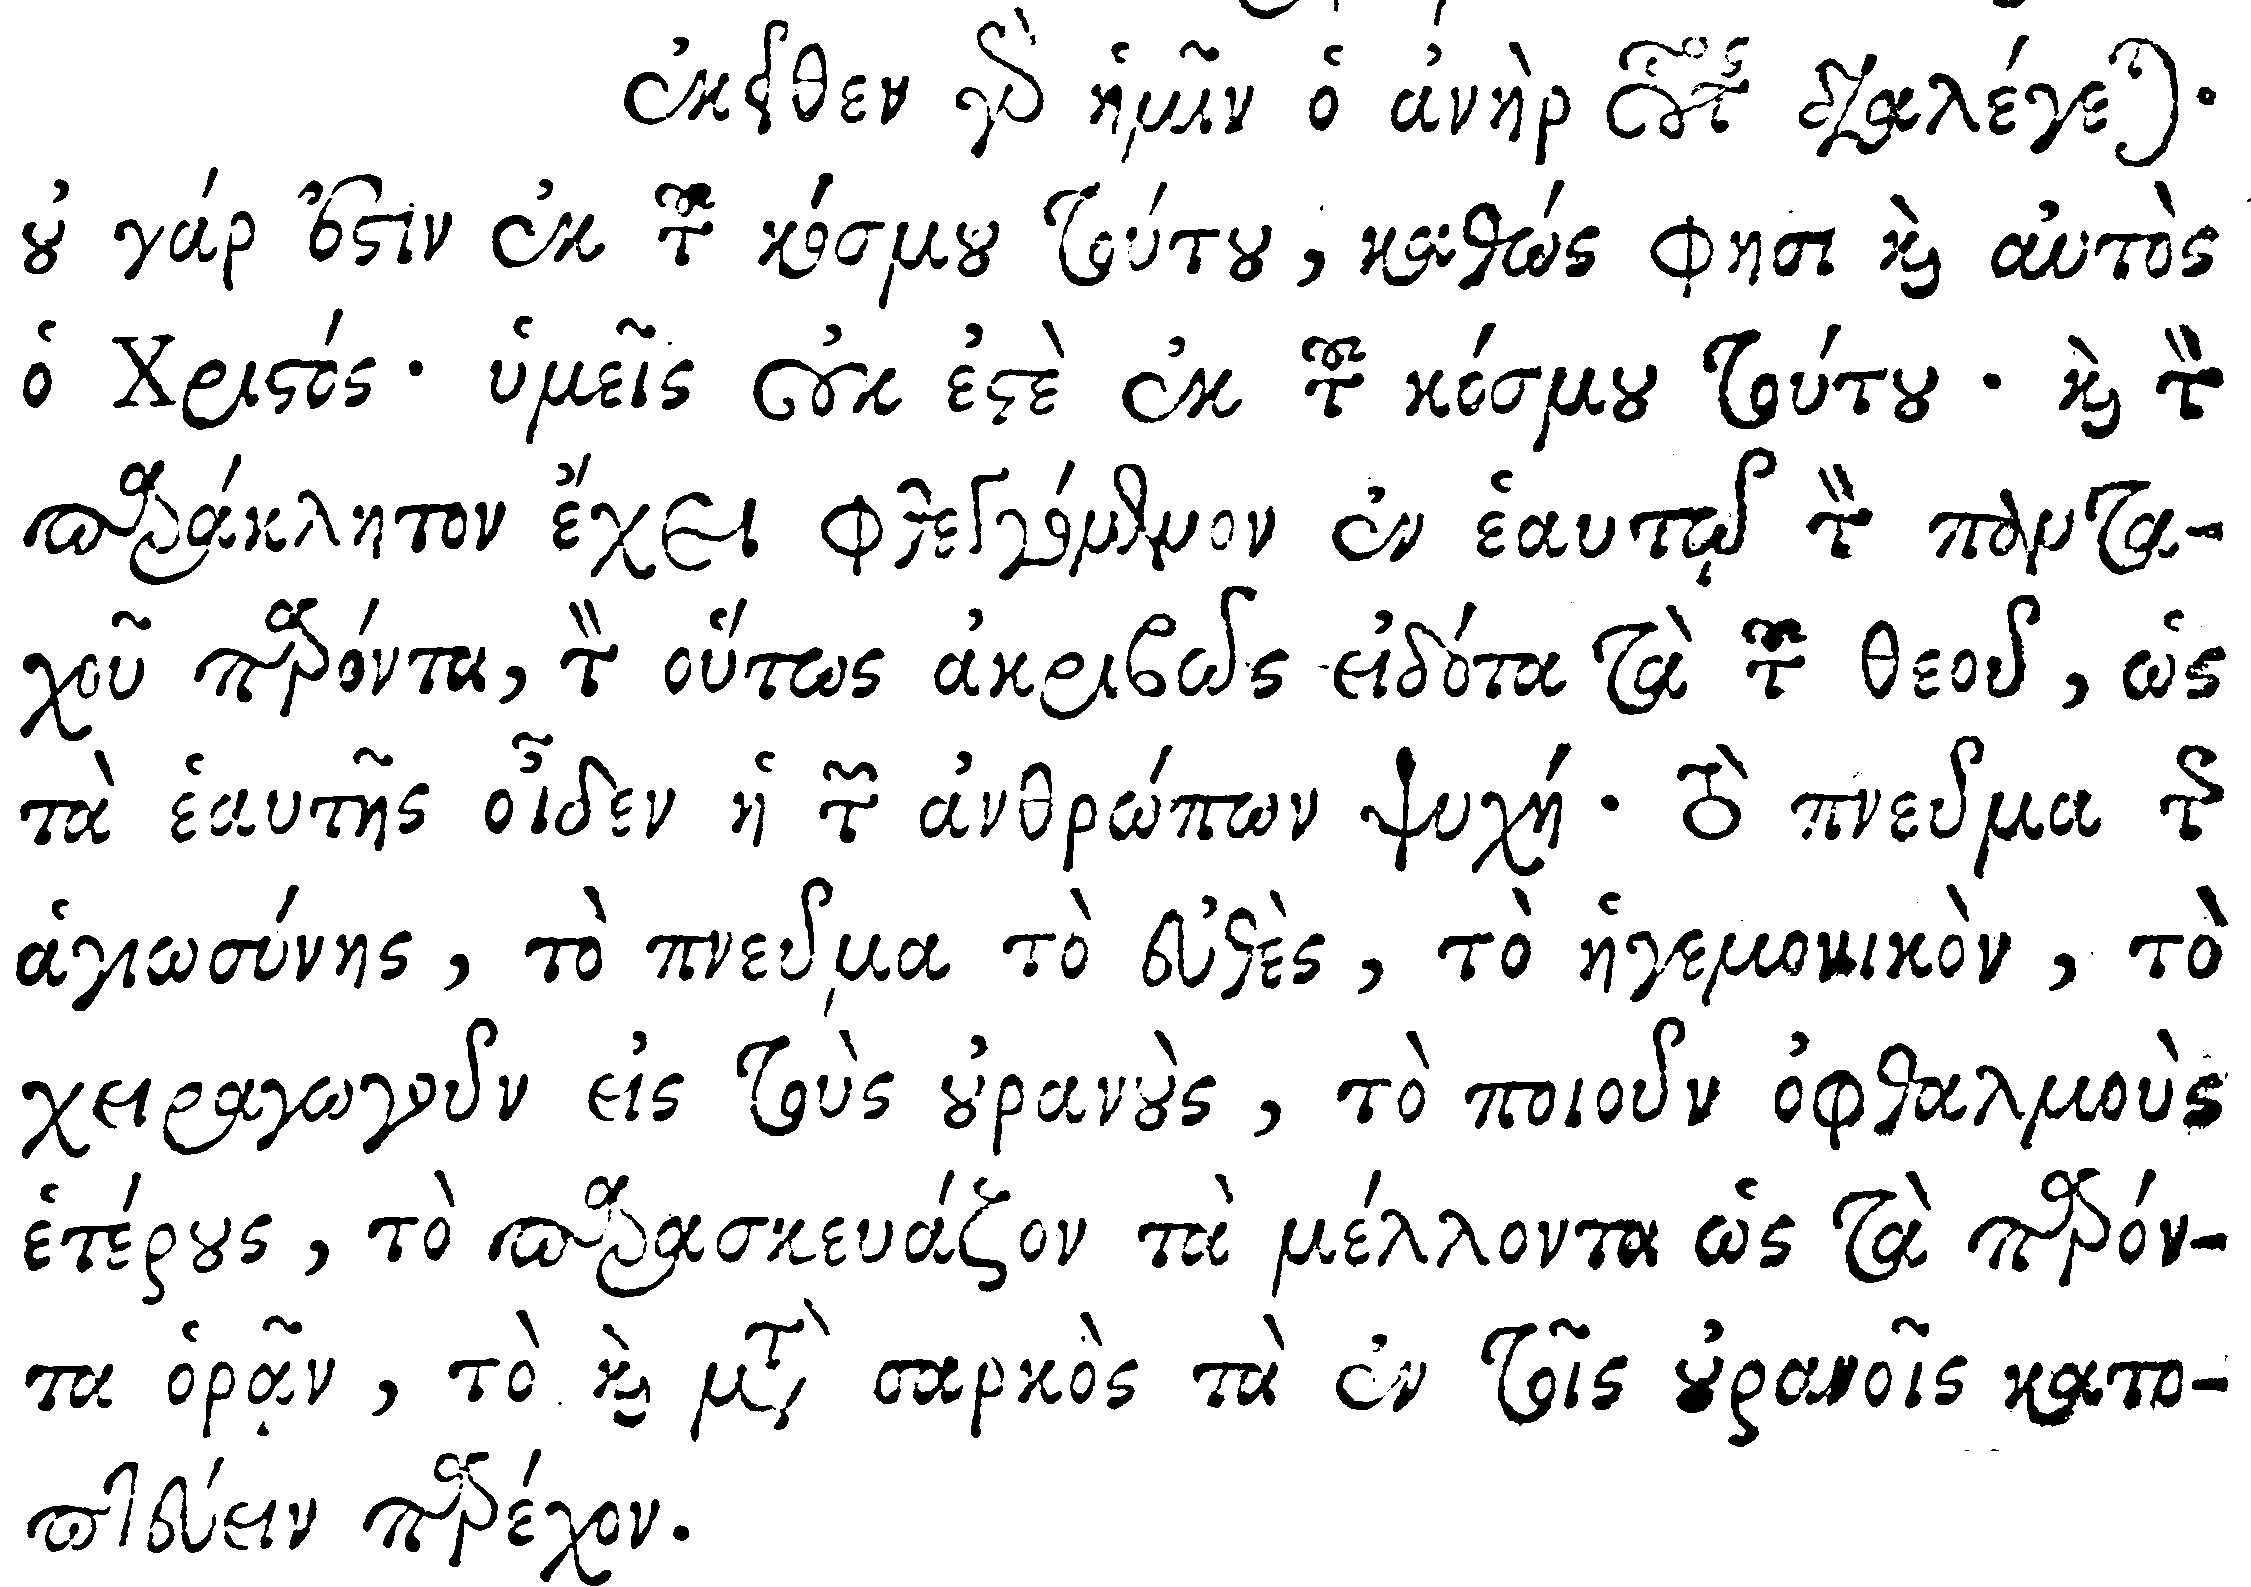 ἐκεῖθεν γὰρ ἡμῖν ὁ ἀνὴρ οὗτος διαλέγεται.
οὐ γάρ ἐστιν ἐκ τοῦ κόσμου τούτου, καθώς φησι καὶ αὐτὸς
ὁ Χριστός· ὑμεῖς οὐκ ἐστὲ ἐκ τοῦ κόσμου τούτου· καὶ τὸν
παράκλητον ἔχει φθεγγόμενον ἐν ἑαυτῷ τὸν παντα-
χοῦ παρόντα, τὸν οὕτως ἀκριβῶς εἰδότα τὰ τοῦ θεοῦ, ὡς
τὰ ἑαυτῆς οἶδεν ἡ τῶν ἀνθρώπων ψυχή· τὸ πνεῦμα τῆς
ἁγιωσύνης, τὸ πνεῦμα τὸ εὐθὲς, τὸ ἡγεμονικὸν, τὸ
χειραγωγοῦν εἰς τοὺς οὐρανοὺς, τὸ ποιοῦν ὀφθαλμοὺς
ἑτέρους, τὸ παρασκευάζον τὰ μέλλοντα ὡς τὰ παρόν-
τα ὁρᾷν, τὸ καὶ μετὰ σαρκὸς τὰ ἐν τοῖς οὐρανοῖς κατο-
πτεύειν παρέχον.